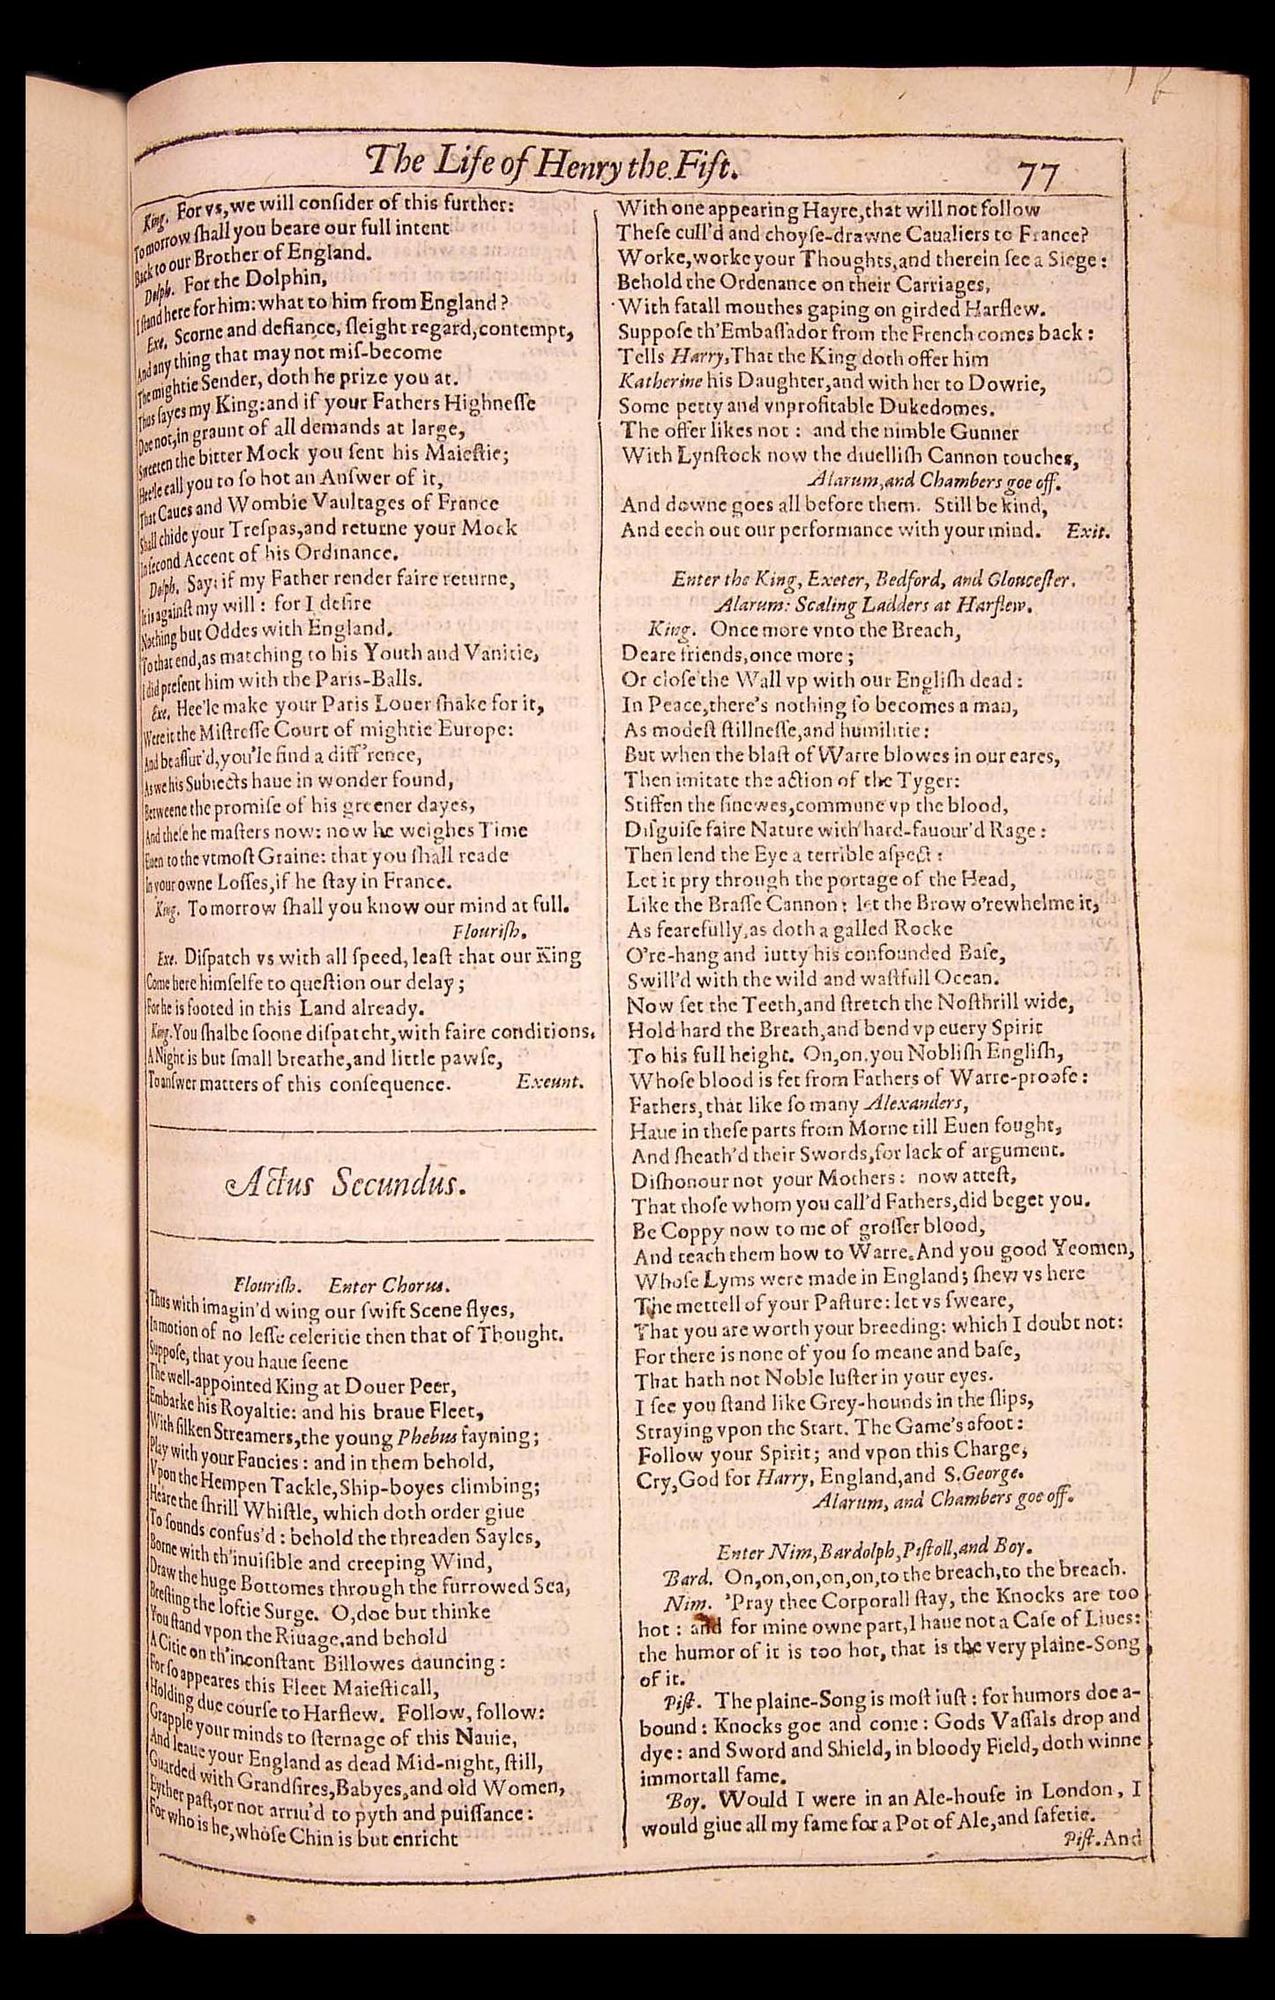 The Life of Henry the Fift.
77
King. For vs, we will conſider of this further:
Tomorrow ſhall you beare our full intent
Back to our Brother of England.
Dolph. For the Dolphin,
I ſtand here for him: what to him from England?
Exe. Scorne and defiance, ſleight regard, contempt,
And any thing that may not miſ-become
The mightie Sender, doth he prize you at.
Thus ſayes my King: and if your Fathers Highneſſe
Doe not, in graunt of all demands at large,
Sweeten the bitter Mock you ſent his Maieſtie;
Hee'le call you to ſo hot an Anſwer of it,
That Caues and Wombie Vaultages of France
Shall chide your Treſpas, and returne your Mock
In ſecond Accent of his Ordinance.
Dolph. Say: if my Father render faire returne,
It is againſt my will: for I deſire
Nothing but Oddes with England.
To that end, as matching to his Youth and Vanitie,
I did preſent him with the Paris-Balls.
Exe. Hee'le make your Paris Louer ſhake for it,
Were it the Miſtreſſe Court of mightie Europe:
And be aſſur'd, you'le find a diff'rence,
As we his Subiects haue in wonder found,
Betweene the promiſe of his greener dayes,
And theſe he maſters now: now he weighes Time
Euen to the vtmoſt Graine: that you ſhall reade
In your owne Loſſes, if he ſtay in France.
King. To morrow ſhall you know our mind at full.
Flouriſh.
Exe. Diſpatch vs with all ſpeed, leaſt that our King
Come here himſelfe to queſtion our delay;
For he is footed in this Land already.
King. You ſhalbe ſoone diſpatcht, with faire conditions.
A Night is but ſmall breathe, and little pawſe,
To anſwer matters of this conſequence. Exeunt.
Actus Secundus.
Flouriſh. Enter Chorus.
Thus with imagin'd wing our ſwift Scene flyes,
In motion of no leſſe celeritie then that of Thought.
Suppoſe, that you haue ſeene
The well-appointed King at Douer Peer,
Embarke his Royaltie: and his braue Fleet,
With ſilken Streamers, the young Phebus fayning;
Play with your Fancies: and in them behold,
Vpon the Hempen Tackle, Ship-boyes climbing;
Heare the ſhrill Whiſtle, which doth order giue
To ſounds confus'd: behold the threaden Sayles,
Borne with th'inuiſible and creeping Wind,
Draw the huge Bottomes through the furrowed Sea,
Breſting the loftie Surge. O, doe but thinke
You ſtand vpon the Riuage, and behold
A Citie on th'inconſtant Billowes dauncing:
For ſo appeares this Fleet Maieſticall,
Holding due courſe to Harflew. Follow, follow:
Grapple your minds to ſternage of this Nauie,
And leaue your England as dead Mid-night, ſtill,
Guarded with Grandſires, Babyes, and old Women,
Eyther paſt, or not arriu'd to pyth and puiſſance:
For who is he, whoſe Chin is but enricht
With one appearing Hayre, that will not follow
Theſe cull'd and choyſe-drawne Caualiers to France?
Worke, worke your Thoughts, and therein ſee a Siege:
Behold the Ordenance on their Carriages,
With fatall mouthes gaping on girded Harflew.
Suppoſe th'Embaſſador from the French comes back:
Tells Harry, That the King doth offer him
Katherine his Daughter, and with her to Dowrie,
Some petty and vnprofitable Dukedomes.
The offer likes not: and the nimble Gunner
With Lynſtock now the diuelliſh Cannon touches,
Alarum, and Chambers goe off.
And downe goes all before them. Still be kind,
And eech out our performance with your mind. Exit.
Enter the King, Exeter, Bedford, and Glouceſter.
Alarum: Scaling Ladders at Harflew.
King. Once more vnto the Breach,
Deare friends, once more;
Or cloſe the Wall vp with our Engliſh dead:
In Peace, there's nothing ſo becomes a man,
As modeſt ſtillneſſe, and humilitie:
But when the blaſt of Warre blowes in our eares,
Then imitate the action of the Tyger:
Stiffen the ſinewes, commune vp the blood,
Diſguiſe faire Nature with hard-fauour'd Rage:
Then lend the Eye a terrible aſpect:
Let it pry through the portage of the Head,
Like the Braſſe Cannon: let the Brow o'rewhelme it,
As fearefully, as doth a galled Rocke
O're-hang and iutty his confounded Baſe,
Swill'd with the wild and waſtfull Ocean.
Now ſet the Teeth, and ſtretch the Noſthrill wide,
Hold hard the Breath, and bend vp euery Spirit
To his full height. On, on, you Nobliſh Engliſh,
Whoſe blood is fet from Fathers of Warre-proofe:
Fathers, that like ſo many Alexanders,
Haue in theſe parts from Morne till Euen fought,
And ſheath'd their Swords, for lack of argument.
Diſhonour not your Mothers: now atteſt,
That thoſe whom you call'd Fathers, did beget you.
Be Coppy now to me of groſſer blood,
And teach them how to Warre. And you good Yeomen,
Whoſe Lyms were made in England; ſhew vs here
The mettell of your Paſture: let vs ſweare,
That you are worth your breeding: which I doubt not:
For there is none of you ſo meane and baſe,
That hath not Noble luſter in your eyes.
I ſee you ſtand like Grey-hounds in the ſlips,
Straying vpon the Start. The Game's afoot:
Follow your Spirit; and vpon this Charge,
Cry, God for Harry, England, and S. George.
Alarum, and Chambers goe off.
Enter Nim, Bardolph, Piſtoll, and Boy.
Bard. On, on, on, on, on, to the breach, to the breach.
Nim. 'Pray thee Corporall ſtay, the Knocks are too
hot: and for mine owne part, I haue not a Caſe of Liues:
the humor of it is too hot, that is the very plaine-Song
of it.
Piſt. The plaine-Song is moſt iuſt: for humors doe a-
bound: Knocks goe and come: Gods Vaſſals drop and
dye: and Sword and Shield, in bloody Field, doth winne
immortall fame.
Boy. Would I were in an Ale-houſe in London, I
would giue all my fame for a Pot of Ale, and ſafetie.
Piſt. And